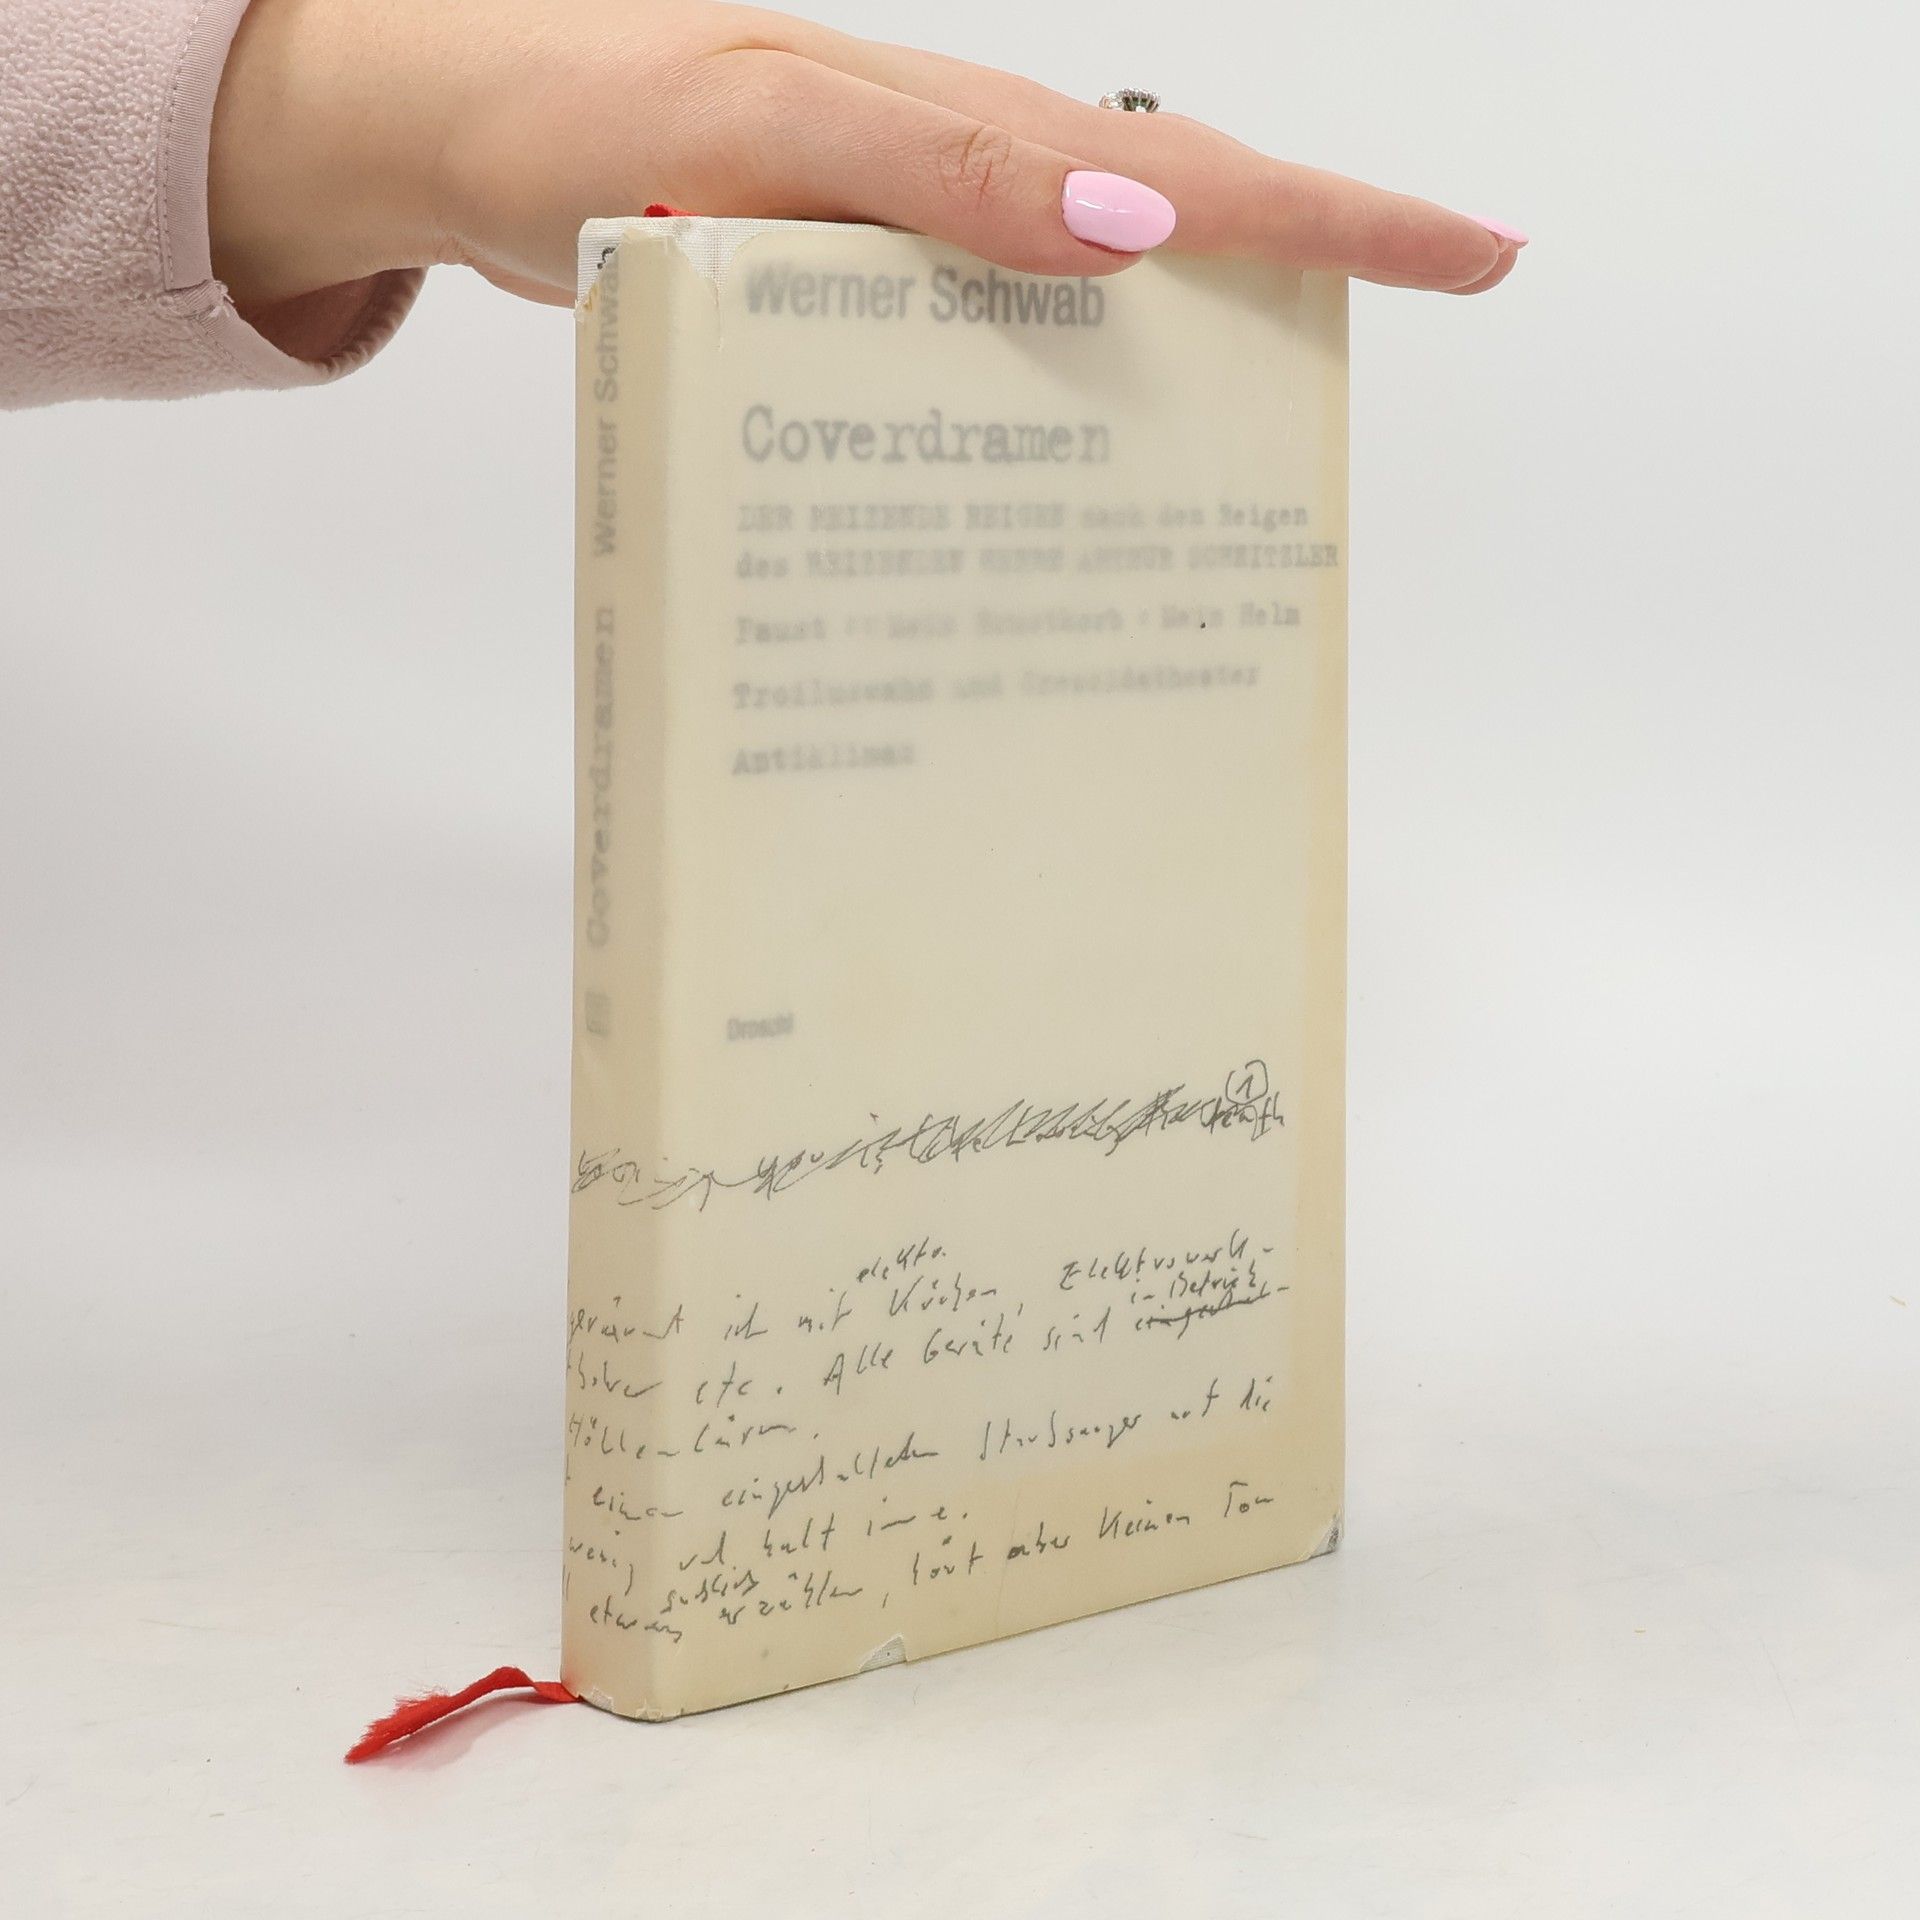 Werner Schwab
Coverdramen
DER REIZENDE REIGEN nach dem Reigen
des REIZENDEN HERRN ARTHUR SCHNITZLER
Faust :: Mein Brustkorb : Mein Helm
Troiluswahn und Cressidatheater
Antiklimax
Droschl
Coverdramen Werner Schwab
1
elektr.
geräumt ich mit Küchen, Elektrowerk-
in Betrieb
etc. Alle Geräte sind
Höllenlärm.
einen eingeschalteten Staubsauger auf die
wenig und halt inne.
etwas erzählen, hört aber keinen Ton